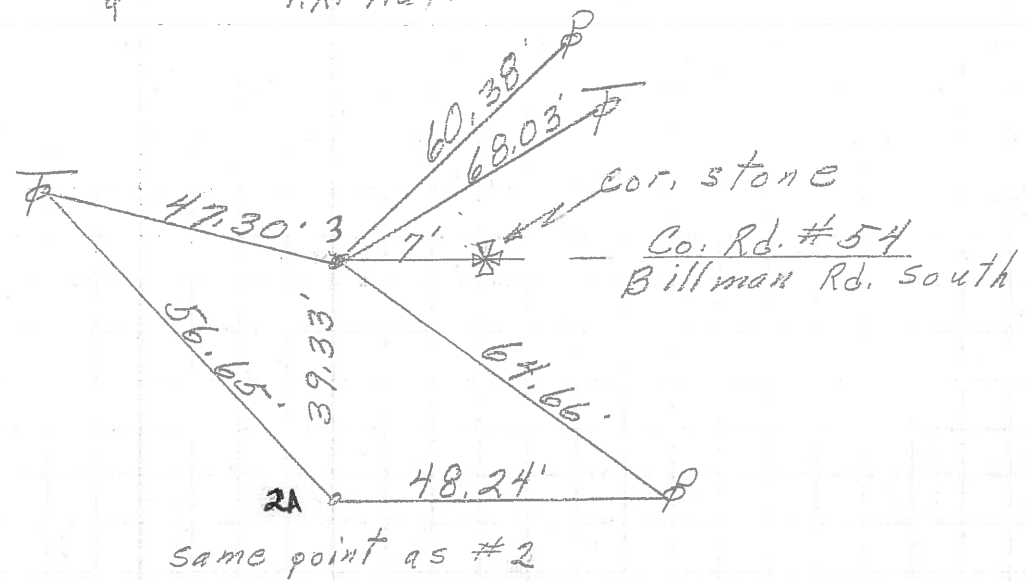 60.38'
68.03'
cor. stone
47.30'
3
7'
Co. Rd. #54
Billman Rd. South
56.65'
39.33'
64.66'
2A
48.24'
same point as #2